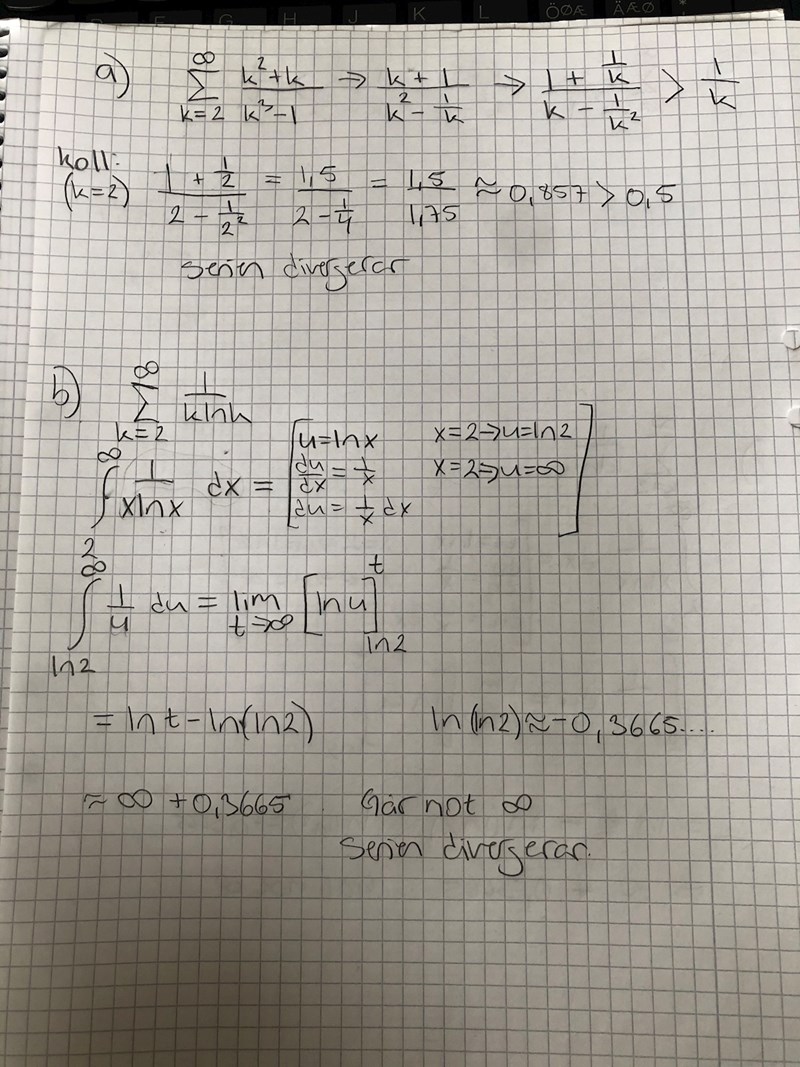 G H J K L ÖØÆ ÄÆØ
a) ∞∑k=2 (k²+k)/(k³-1) → (k+1)/(k²-1/k) → (1+1/k)/(k-1/k²) > 1/k
koll:
(k=2) (1+1/2)/(2-1/2²) = 1,5/(2-1/4) = 1,5/1,75 ≈ 0,857 > 0,5
serien divergerar
b) ∞∑k=2 1/(k ln k)
∞∫2 1/(x ln x) dx = [u=ln x x=2→u=ln2
du/dx = 1/x x=2→u=∞
du = 1/x dx]
∞∫ln2 1/u du = lim t→∞ [ln u]^t_ln2
= ln t - ln(ln2) ln(ln2) ≈ -0,3665....
≈ ∞ + 0,3665 Går mot ∞
Serien divergerar.